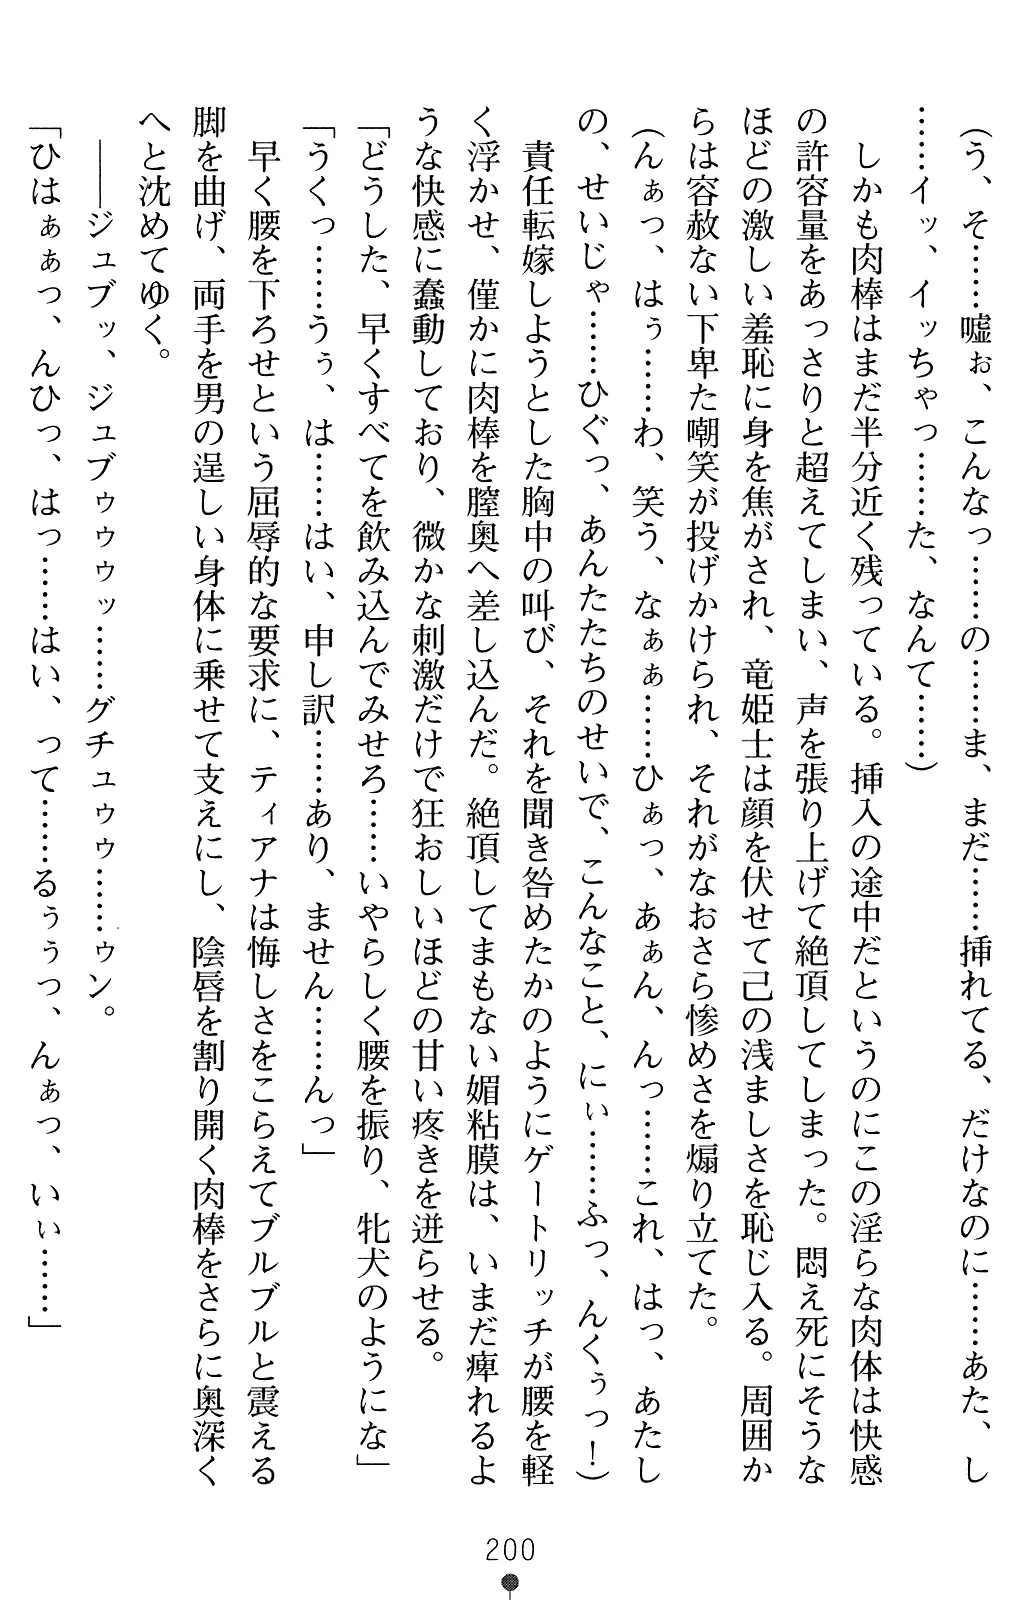 （う、そ……嘘ぉ、こんなっ……の……ま、まだ……挿れてる、だけなのに……あた、し
……イッ、イッちゃっ……た、なんて……）
　しかも肉棒はまだ半分近く残っている。挿入の途中だというのにこの淫らな肉体は快感
の許容量をあっさりと超えてしまい、声を張り上げて絶頂してしまった。悶え死にそうな
ほどの激しい羞恥に身を焦がされ、竜姫士は顔を伏せて己の浅ましさを恥じ入る。周囲か
らは容赦ない下卑た嘲笑が投げかけられ、それがなおさら惨めさを煽り立てた。
（んぁっ、はぅ……わ、笑う、なぁぁ……ひぁっ、あぁん、んっ……これ、はっ、あたし
の、せいじゃ……ひぐっ、あんたたちのせいで、こんなこと、にぃ……ふっ、んくぅっ！）
　責任転嫁しようとした胸中の叫び、それを聞き咎めたかのようにゲートリッチが腰を軽
く浮かせ、僅かに肉棒を膣奥へ差し込んだ。絶頂してまもない媚粘膜は、いまだ痺れるよ
うな快感に蠢動しており、微かな刺激だけで狂おしいほどの甘い疼きを迸らせる。
「どうした、早くすべてを飲み込んでみせろ……いやらしく腰を振り、牝犬のようにな」
「うくっ……うぅ、は……はい、申し訳……あり、ません……んっ」
　早く腰を下ろせという屈辱的な要求に、ティアナは悔しさをこらえてブルブルと震える
脚を曲げ、両手を男の逞しい身体に乗せて支えにし、陰唇を割り開く肉棒をさらに奥深く
へと沈めてゆく。
　――ジュブッ、ジュブゥゥゥッ……グチュゥゥ……ゥン。
「ひはぁぁっ、んひっ、はっ……はい、って……るぅうっ、んぁっ、いぃ……」
200